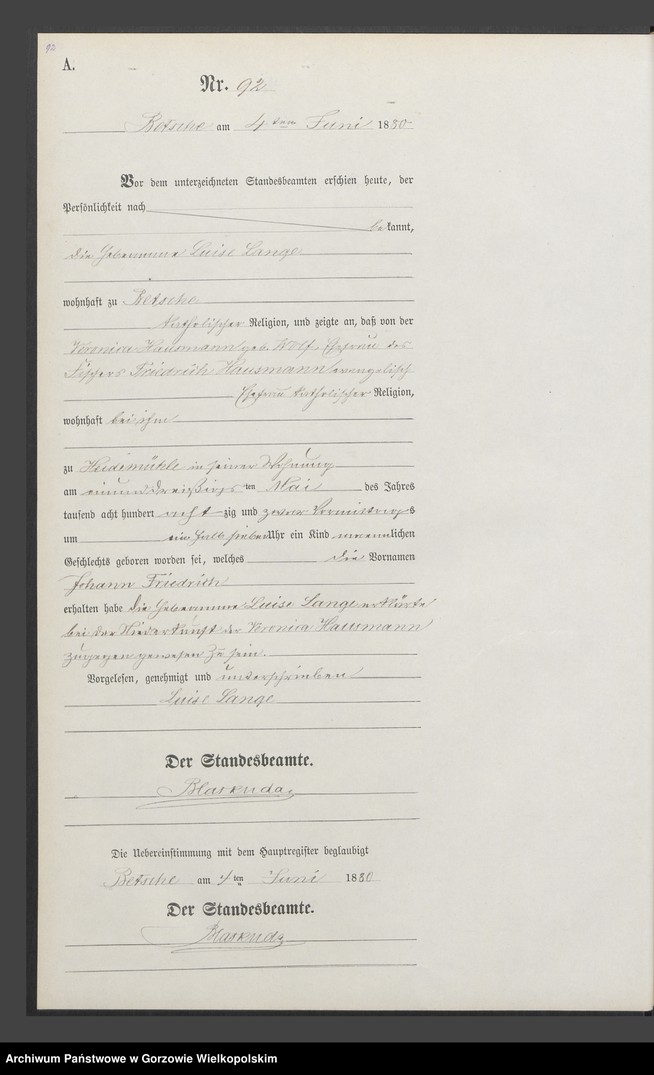 92
A.
Nr. 92
Betsche am 4 ten Juni 1880
Vor dem unterzeichneten Standesbeamten erschien heute, der
Persönlichkeit nach
bekannt,
die Hebamme Luise Lange
wohnhaft zu Betsche
katholischer Religion, und zeigte an, daß von der
Veronica Hausmann geb. Wolf, Ehefrau des
Fischers Friedrich Hausmann evangelisch
Ehefrau katholischer Religion,
wohnhaft bei ihm
zu Heidemühle in seiner Wohnung
am einunddreißigsten Mai des Jahres
tausend acht hundert achtzig und zwar Vormittags
um ein halb sieben Uhr ein Kind maennlichen
Geschlechts geboren worden sei, welches die Vornamen
Johann Friedrich
erhalten habe die Hebamme Luise Lange erklärte
bei der Niederkunft der Veronica Hausmann
zugegen gewesen zu sein.
Vorgelesen, genehmigt und unterschrieben
Luise Lange
Der Standesbeamte.
Die Uebereinstimmung mit dem Hauptregister beglaubigt
Betsche am 4 ten Juni 1880
Der Standesbeamte.
Archiwum Państwowe w Gorzowie Wielkopolskim